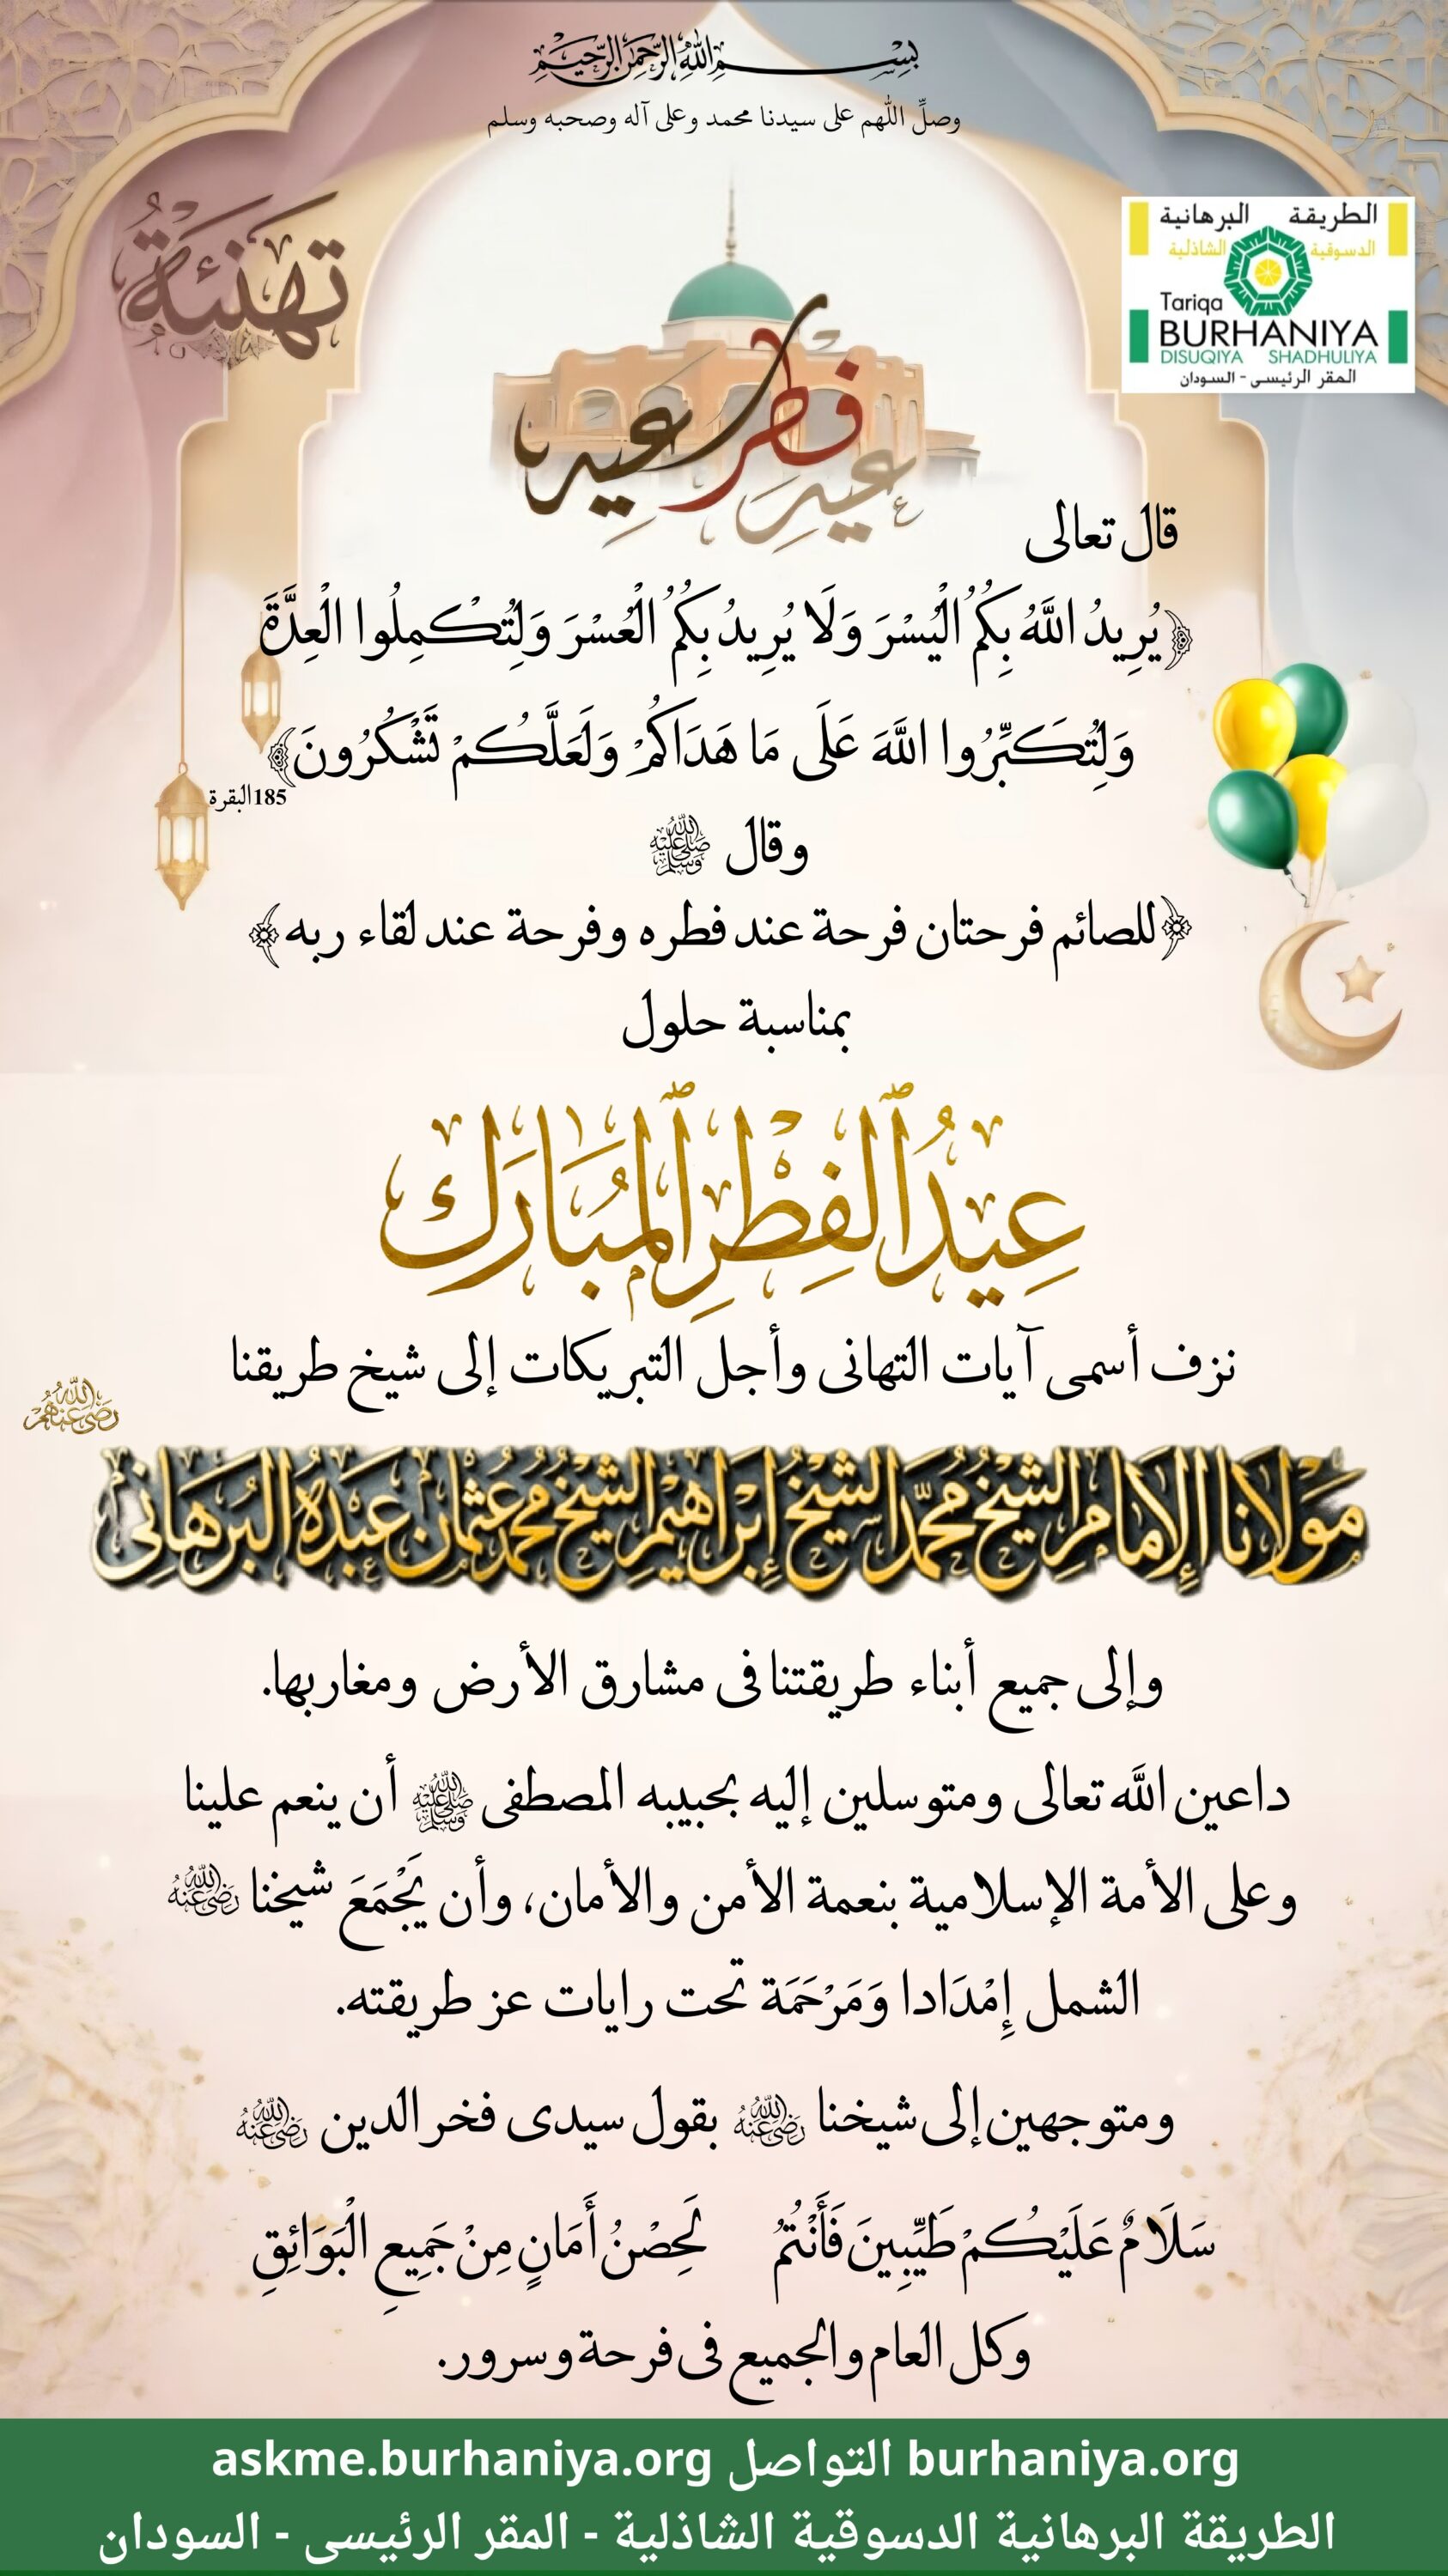 بسم الله الرحمن الرحيم
وصلِّ اللهم على سيدنا محمد وعلى آله وصحبه وسلم
تهنئة
الطريقة البرهانية
الدسوقية الشاذلية
Tariqa
BURHANIYA
DISUQIYA SHADHULIYA
المقر الرئيسى - السودان
عيد فطر
عيد
قال تعالى
﴿يُرِيدُ اللَّهُ بِكُمُ الْيُسْرَ وَلَا يُرِيدُ بِكُمُ الْعُسْرَ وَلِتُكْمِلُوا الْعِدَّةَ
وَلِتُكَبِّرُوا اللَّهَ عَلَى مَا هَدَاكُمْ وَلَعَلَّكُمْ تَشْكُرُونَ﴾
185البقرة
وقال ﷺ
﴿للصائم فرحتان فرحة عند فطره وفرحة عند لقاء ربه﴾
بمناسبة حلول
عِيدُ ٱلفِطْرِ ٱلمُبَارَك
نزف أسمى آيات التهانى وأجل التبريكات إلى شيخ طريقنا
رضى الله عنهم
مَوْلَانَا الإِمَامِ الشَّيْخ مُحَمَّد الشَّيْخ إِبْرَاهِيم الشَّيْخ مُحَمَّد عُثْمَان عَبْدُهُ البُرْهَانِى
وإلى جميع أبناء طريقتنا فى مشارق الأرض ومغاربها.
داعين الله تعالى ومتوسلين إليه بحبيبه المصطفى ﷺ أن ينعم علينا
وعلى الأمة الإسلامية بنعمة الأمن والأمان، وأن يَجْمَعَ شيخنا رضي الله عنه
الشمل إِمْدَادا وَمَرْحَمَة تحت رايات عز طريقته.
ومتوجهين إلى شيخنا رضي الله عنه بقول سيدى فخر الدين رضي الله عنه
سَلَامٌ عَلَيْكُمْ طَيِّبِينَ فَأَنْتُمُ لَحِصْنُ أَمَانٍ مِنْ جَمِيعِ الْبَوَائِقِ
وكل العام والجميع فى فرحة وسرور.
burhaniya.org التواصل askme.burhaniya.org
الطريقة البرهانية الدسوقية الشاذلية - المقر الرئيسى - السودان